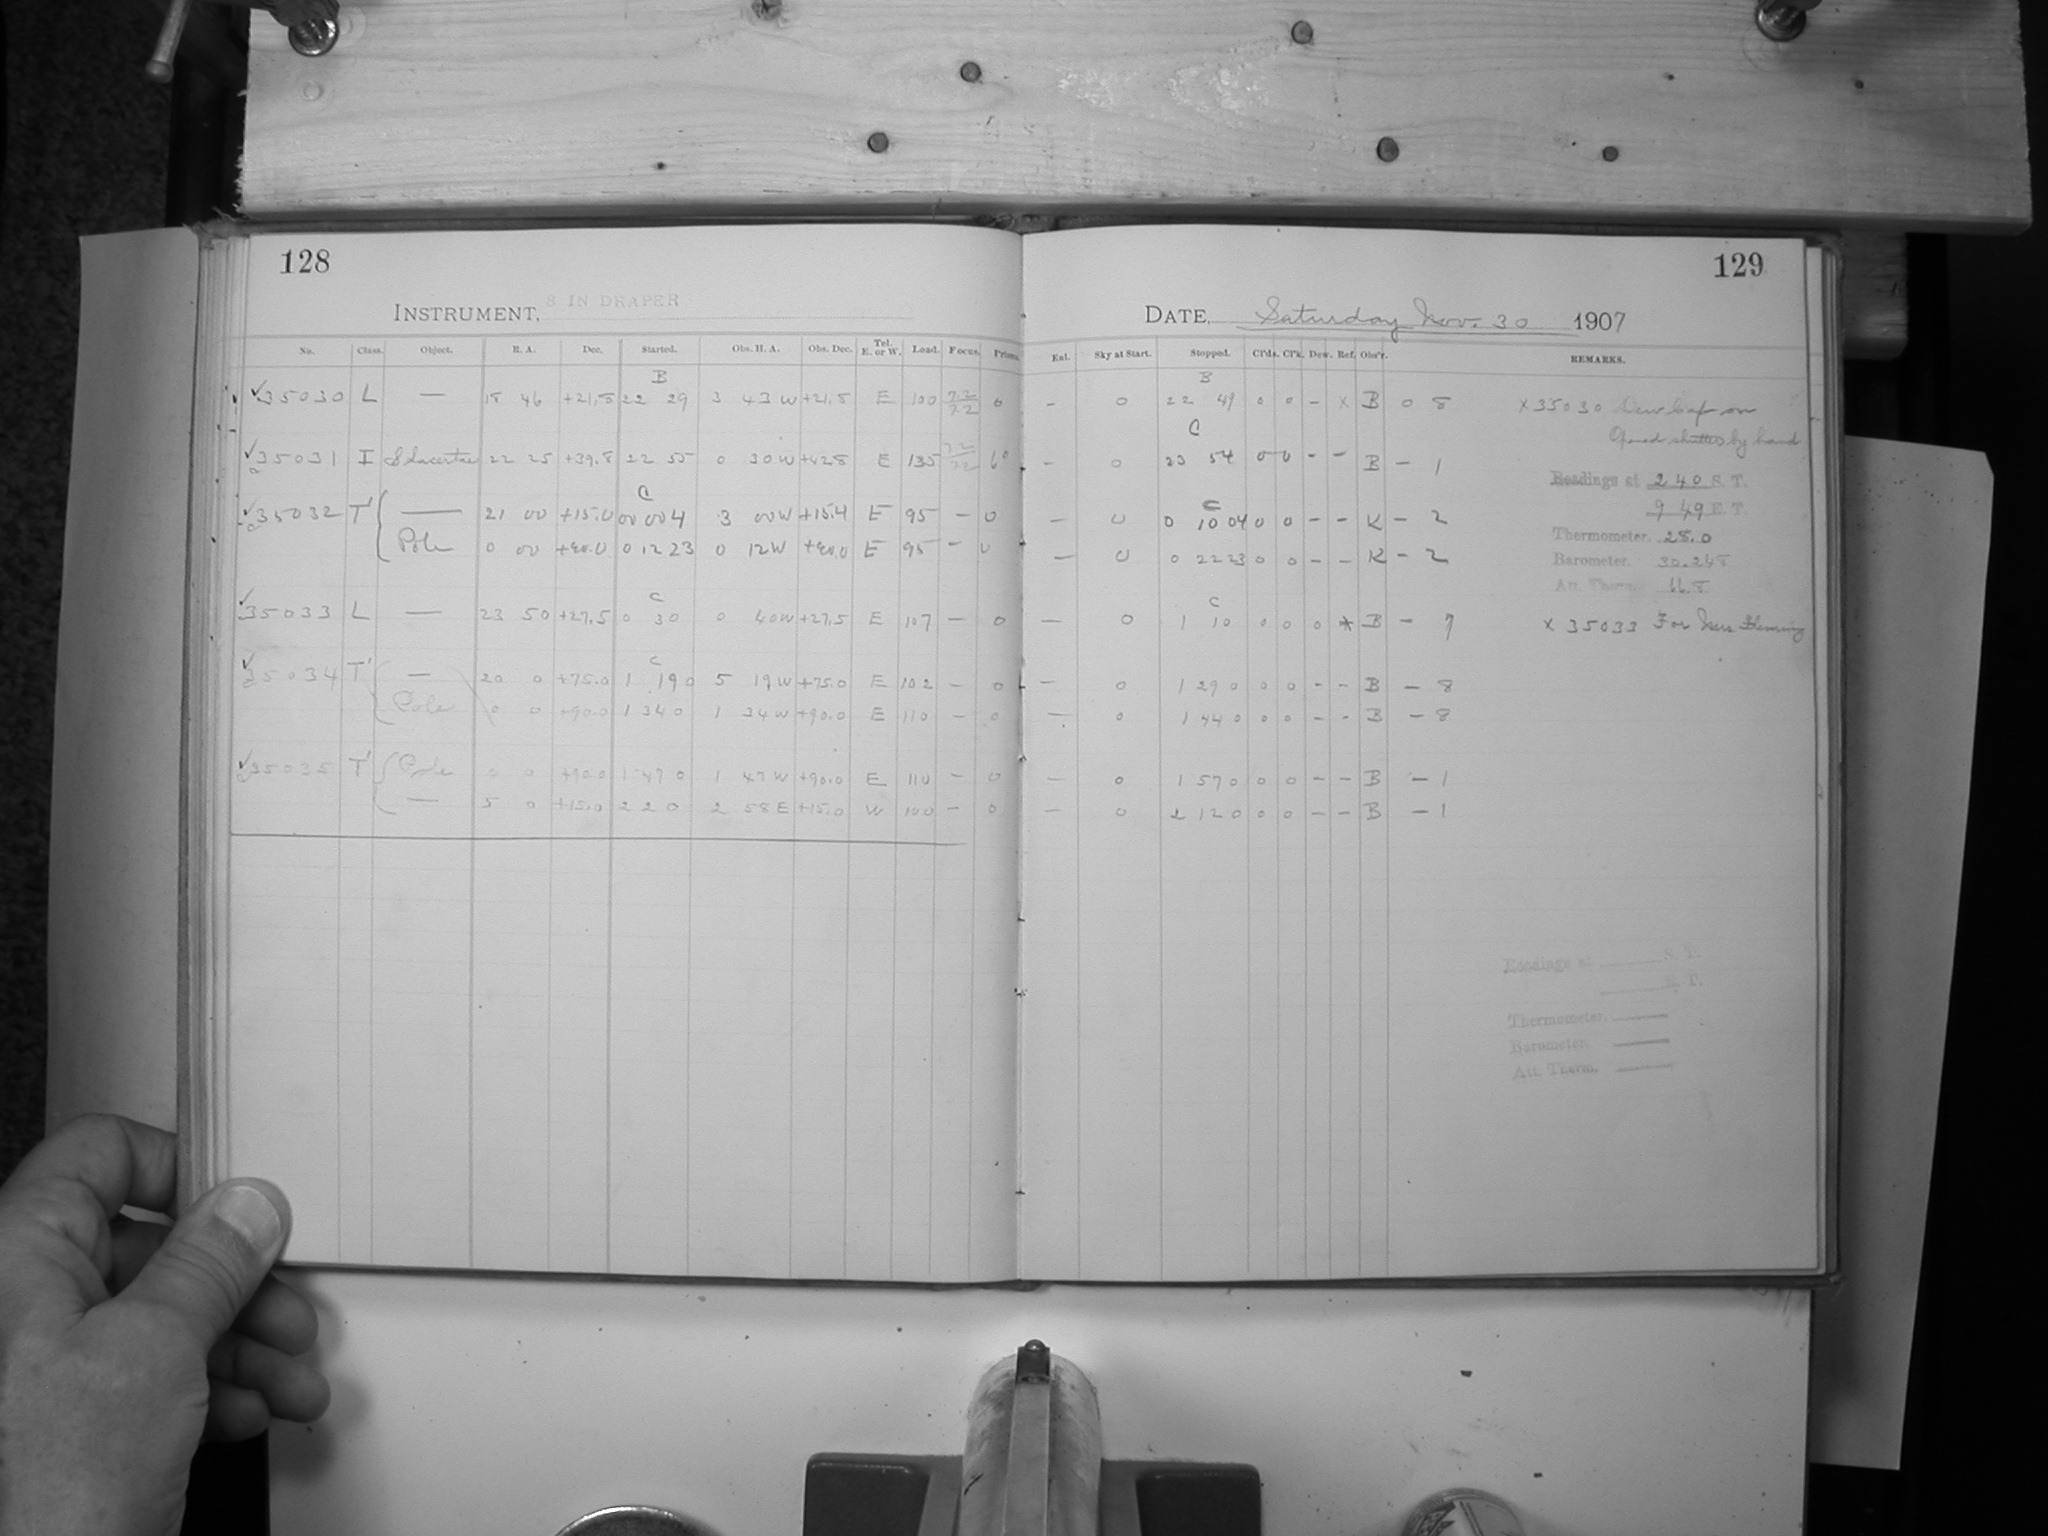 128
INSTRUMENT, 8 IN DRAPER
No. Class. Object. R. A. Dec. Started. Obs. H. A. Obs. Dec. Tel. E. or W. Load. Focus. Prisms.
B
35030 L — 18 46 +21.8 22 29 3 43 W +21.8 E 100 7.2 7.2 0
35031 I S Lacertae 22 25 +39.8 22 55 0 30 W +42.8 E 135 7.2 7.2 6°
C
35032 T' — 21 00 +15.0 00 00 4 3 00 W +15.4 E 95 – 0
Pole 0 00 +90.0 0 12 23 0 12 W +90.0 E 95 – 0
C
35033 L — 23 50 +27.5 0 30 0 40 W +27.5 E 107 – 0
C
35034 T' — 20 0 +75.0 1 19 0 5 19 W +75.0 E 102 – 0
Pole 0 0 +90.0 1 34 0 1 34 W +90.0 E 110 – 0
35035 T' Pole 0 0 +90.0 1 47 0 1 47 W +90.0 E 110 – 0
— 5 0 +15.0 2 2 0 2 58 E +15.0 W 100 – 0
129
DATE, Saturday Nov. 30 1907
Ext. Sky at Start. Stopped. Cl'ds. Cl'k. Dew. Ref. Obs'r. REMARKS.
B
– 0 22 49 0 0 – x B 0 8 x 35030 Dew Cap on
Opened shutter by hand
C
– 0 23 54 0 0 – – B – 1
Readings at 2 40 S. T.
9 49 E. T.
C
– 0 0 10 04 0 0 – – K – 2
Thermometer. 28.0
– 0 0 22 23 0 0 – – K – 2
Barometer. 30.248
Att. Therm. 66.8
C
– 0 1 10 0 0 0 * B – 7 x 35033 For Mrs Fleming
– 0 1 29 0 0 0 – – B – 8
– 0 1 44 0 0 0 – – B – 8
– 0 1 57 0 0 0 – – B – 1
– 0 2 12 0 0 0 – – B – 1
Readings at S. T.
E. T.
Thermometer.
Barometer.
Att. Therm.